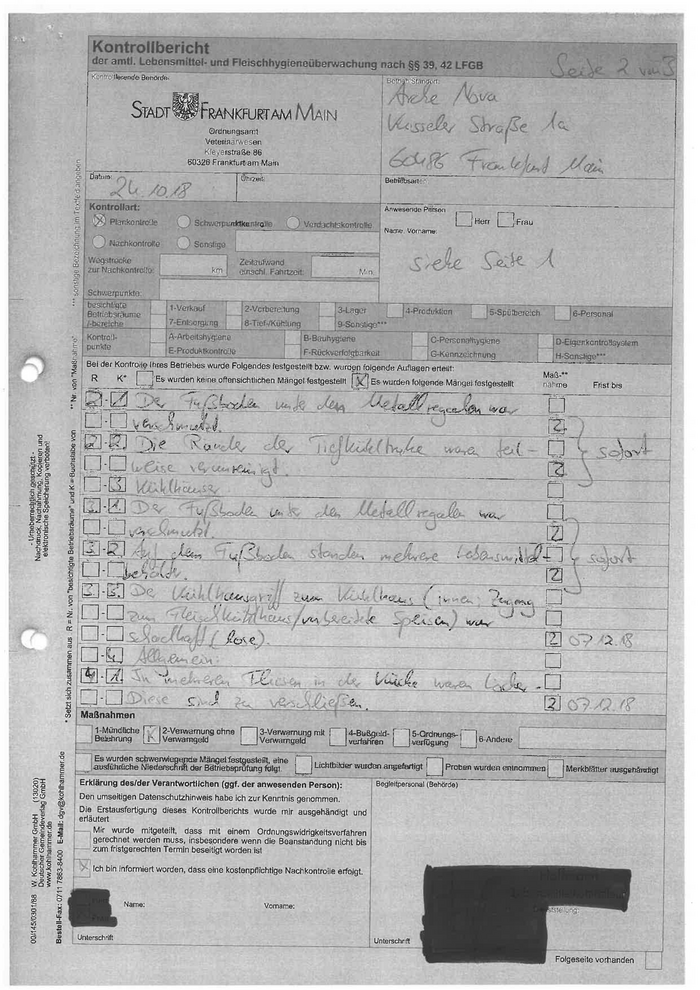 Kontrollbericht
der amtl. Lebensmittel- und Fleischhygieneüberwachung nach §§ 39, 42 LFGB
Seite 2 von 3
Kontrollierende Behörde:
STADT FRANKFURT AM MAIN
Ordnungsamt
Veterinärwesen
Kleyerstraße 86
60326 Frankfurt am Main
Betrieb: Standort:
Arche Nova
Kasseler Straße 1a
60486 Frankfurt Main
Datum:
24.10.18
Uhrzeit:
Betriebsart:
Kontrollart:
Plankontrolle
Schwerpunktkontrolle
Verdachtskontrolle
Nachkontrolle
Sonstige
Anwesende Person
Herr
Frau
Name, Vorname:
siehe Seite 1
Wegstrecke
zur Nachkontrolle:
km
Zeitaufwand
einschl. Fahrtzeit:
Min.
Schwerpunkte:
besichtigte
Betriebsräume
/-bereiche
1-Verkauf
2-Vorbereitung
3-Lager
4-Produktion
5-Spülbereich
6-Personal
7-Entsorgung
8-Tief-/Kühlung
9-Sonstige***
Kontroll-
punkte
A-Arbeitshygiene
B-Bauhygiene
C-Personalhygiene
D-Eigenkontrollsystem
E-Produktkontrolle
F-Rückverfolgbarkeit
G-Kennzeichnung
H-Sonstige***
Bei der Kontrolle Ihres Betriebes wurde Folgendes festgestellt bzw. wurden folgende Auflagen erteilt:
R K* Es wurden keine offensichtlichen Mängel festgestellt X Es wurden folgende Mängel festgestellt
Maß-**
nahme
Frist bis
2. 1. Der Fußboden unter den Metallregalen war
verschmutzt. 2
2. 2. Die Ränder der Tiefkühltruhe waren teil-
sofort
weise verunreinigt. 2
3 Kühlhäuser
3. 1. Der Fußboden unter den Metallregalen war
verschmutzt. 2
3. 2. Auf dem Fußboden standen mehrere Lebensmittel-
sofort
behälter. 2
3. 3. Der Kühlhausgriff zum Kühlhaus (innen; Zugang
zum Fleischkühlhaus/vorbereitete Speisen) war
schadhaft (lose). 2 07.12.18
4. Allgemein:
4. 1. In mehreren Fliesen in der Küche waren Löcher.
Diese sind zu verschließen. 2 07.12.18
Maßnahmen
1-Mündliche
Belehrung
X 2-Verwarnung ohne
Verwarngeld
3-Verwarnung mit
Verwarngeld
4-Bußgeld-
verfahren
5-Ordnungs-
verfügung
6-Andere
Es wurden schwerwiegende Mängel festgestellt, eine
ausführliche Niederschrift der Betriebsprüfung folgt
Lichtbilder wurden angefertigt
Proben wurden entnommen
Merkblätter ausgehändigt
Erklärung des/der Verantwortlichen (ggf. der anwesenden Person):
Den umseitigen Datenschutzhinweis habe ich zur Kenntnis genommen.
Die Erstausfertigung dieses Kontrollberichts wurde mir ausgehändigt und
erläutert
Mir wurde mitgeteilt, dass mit einem Ordnungswidrigkeitsverfahren
gerechnet werden muss, insbesondere wenn die Beanstandung nicht bis
zum fristgerechten Termin beseitigt worden ist
X Ich bin informiert worden, dass eine kostenpflichtige Nachkontrolle erfolgt.
Name:
Vorname:
Unterschrift
Begleitpersonal (Behörde)
Unterschrift
Folgeseite vorhanden
*** sonstige Bezeichnung im Textfeld angeben
** Nr. von "Maßnahme"
* Setzt sich zusammen aus R = Nr. von "besichtigte Betriebsräume" und K = Buchstabe von
- Urheberrechtlich geschützt -
Nachdruck, Nachahmung, Kopieren und
elektronische Speicherung verboten!
00/145/0301/88 W. Kohlhammer GmbH (13020)
Deutscher Gemeindeverlag GmbH
www.kohlhammer.de
Bestell-Fax: 0711 7863-8400 E-Mail: dgv@kohlhammer.de